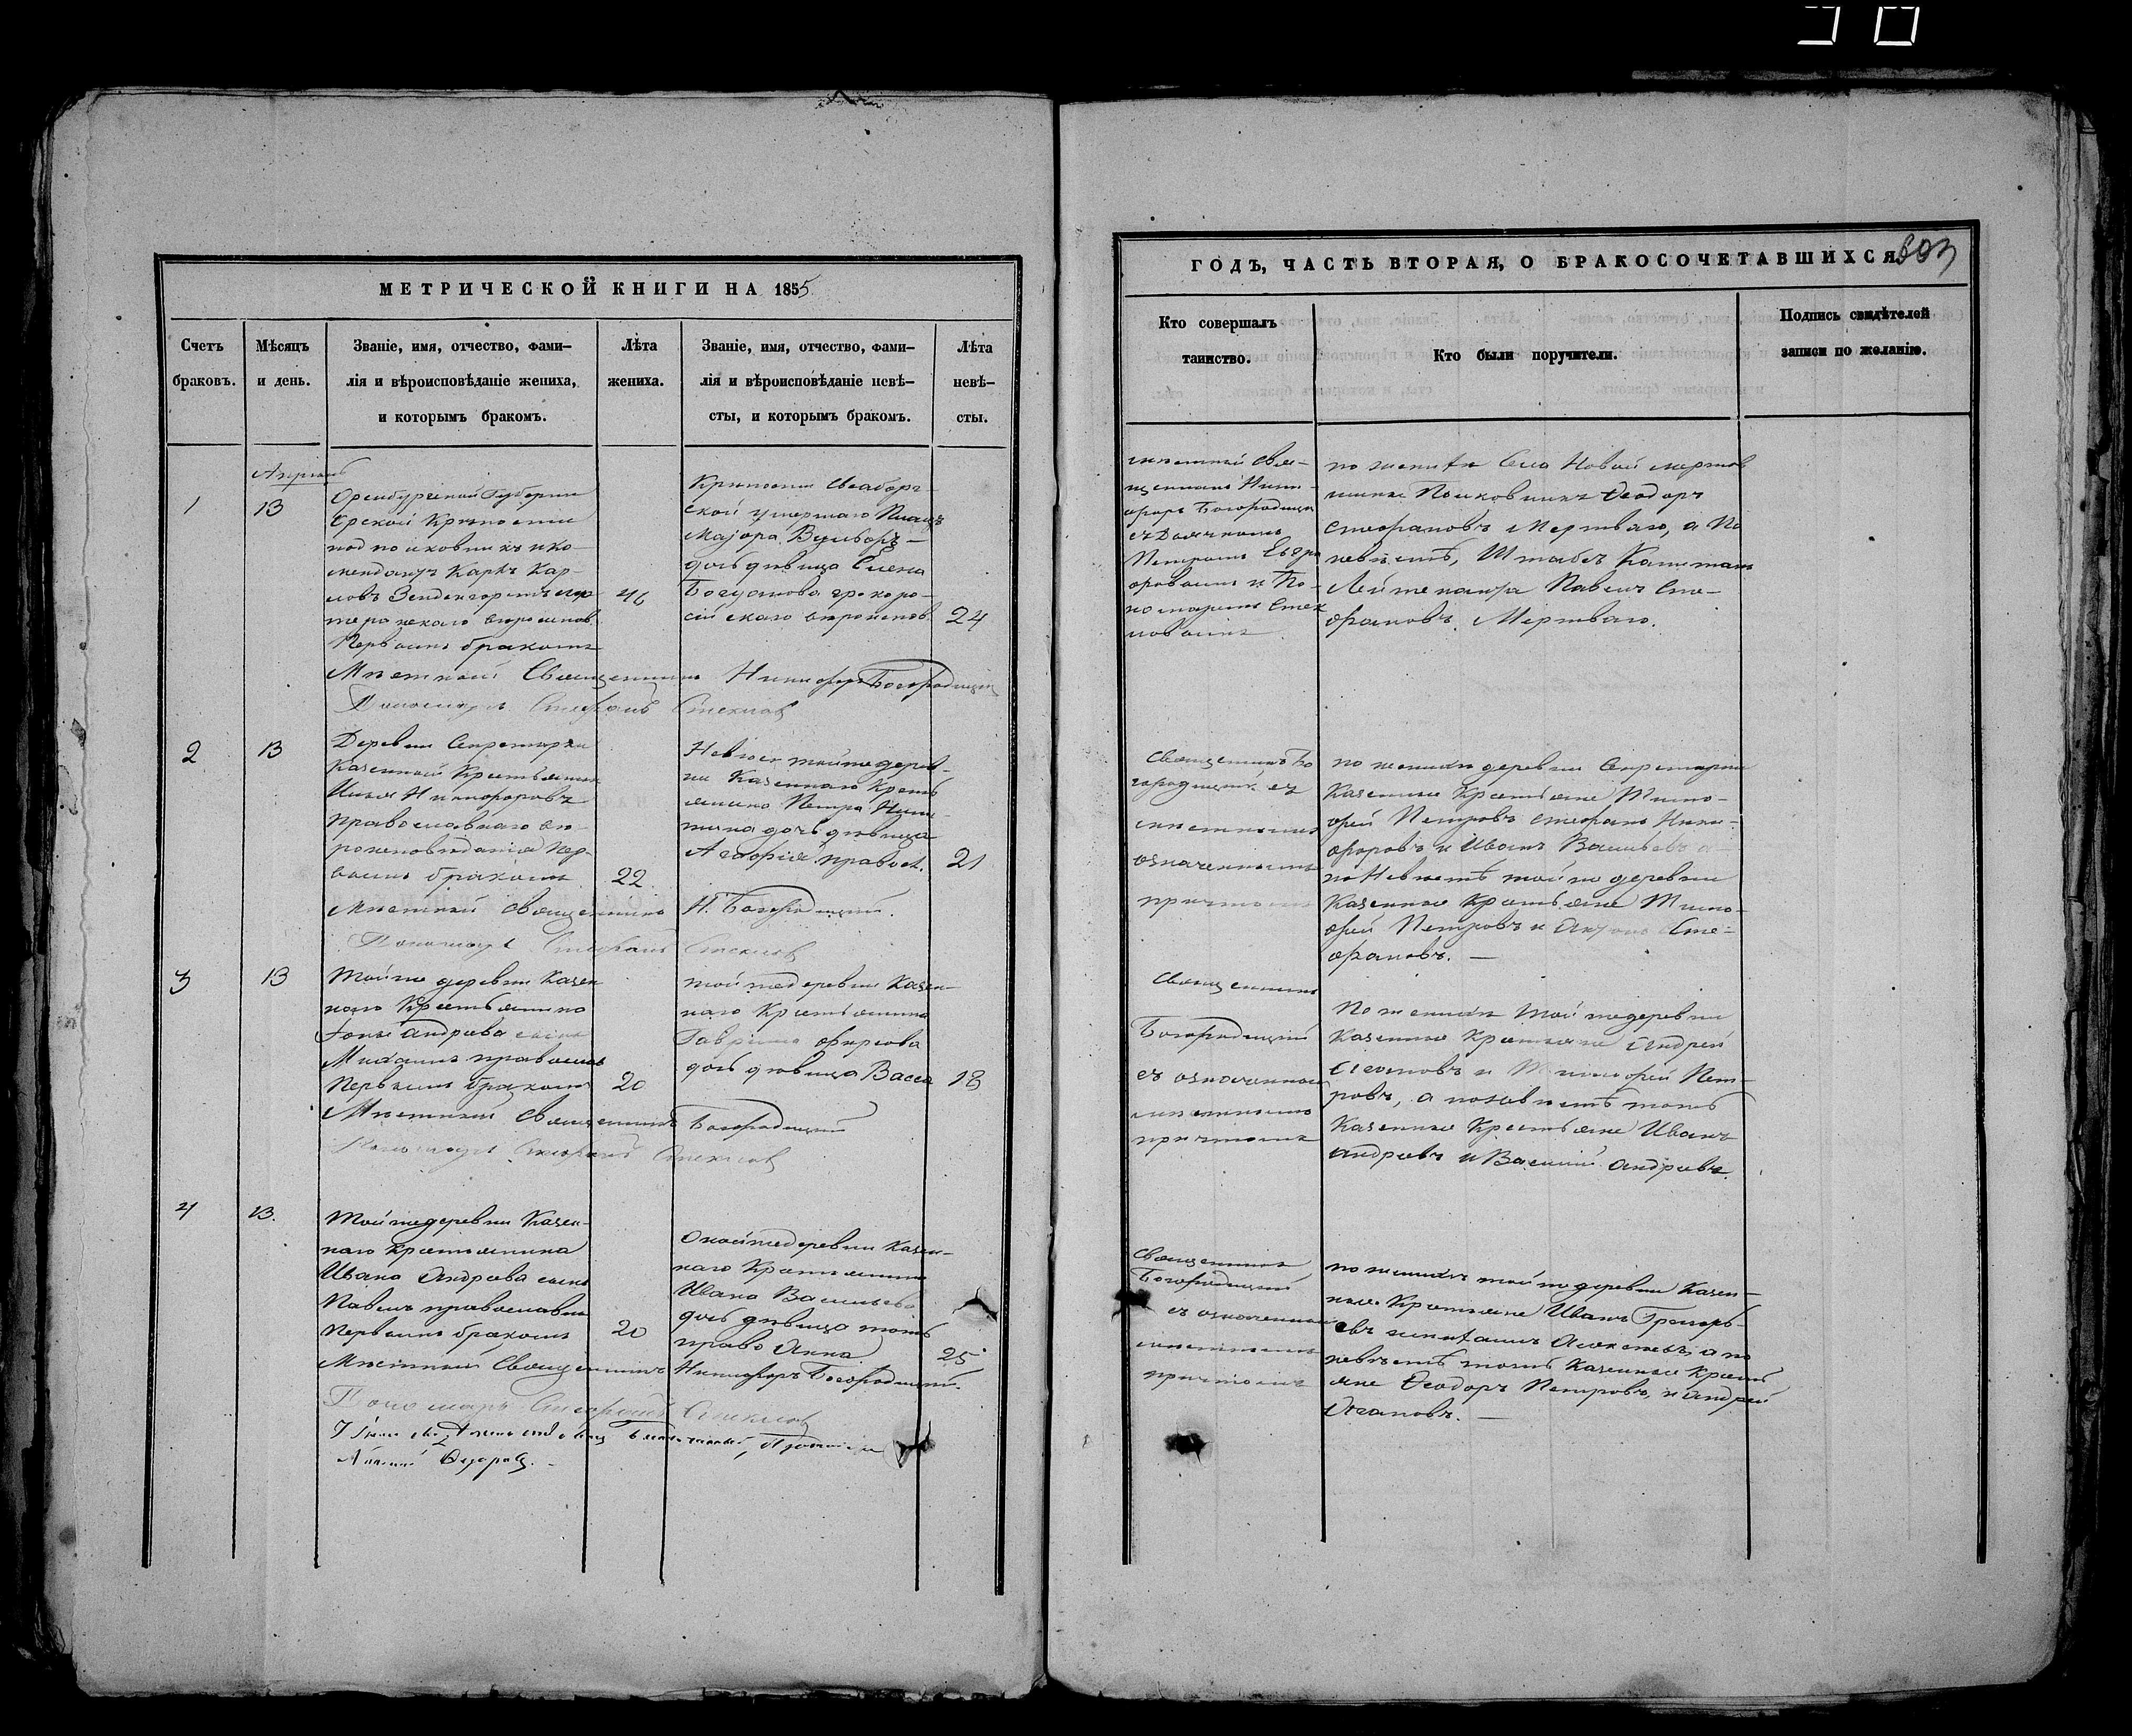 МЕТРИЧЕСКОЙ КНИГИ НА 1855
Счетъ браковъ.
Мѣсяцъ и день.
Званіе, имя, отчество, фами-
лія и вѣроисповѣданіе жениха,
и которымъ бракомъ.
Лѣта жениха.
Званіе, имя, отчество, фами-
лія и вѣроисповѣданіе невѣ-
сты, и которымъ бракомъ.
Лѣта невѣ-
сты.
1
13
Оренбургской Губерніи
Орской Крѣпости
подполковникъ и ко-
мендантъ Карлъ Кар-
ловъ
Первымъ бракомъ
46
Крѣпости Свеаборг-
ской умершаго Плацъ
Маіора
дочь дѣвица Елена
Богданова
24
Мѣстной Священникъ Никифоръ Богородицкій
Пономарь Стефанъ Стеклов
2
13
Деревни Секретарки
Казенной Крестьянинъ
Никифоровъ
Православнаго вѣ-
роисповѣданія Пер-
вымъ бракомъ
22
Невѣста тойже дерев-
ни Казеннаго Кресть
янина Петра Ники-
тина дочь дѣвица
Агафія правосл.
21
Мѣстный священникъ Н. Богородицкій.
Пономарь Стефанъ Стеклов
3
13
Тойже деревни Казен
наго Крестьянина
Андреева сынъ
Михаилъ православ
Первымъ бракомъ
20
тойже деревни Казен-
наго Крестьянина
Гаврила Фирсова
дочь дѣвица Васса
18
Мѣстный Священникъ Богородицкій
Пономарь Стефанъ Стеклов
4
13.
Тойже деревни Казен-
наго крестьянина
Ивана Андреева сынъ
Павелъ православн
первымъ бракомъ
20
Оной же деревни Казен-
наго Крестьянина
Ивана Васильева
дочь дѣвица тожъ
право Анна
25
Мѣстный Священникъ Никифоръ Богородицкій.
Пономарь Стефанъ Стеклов
ГОДЪ, ЧАСТЬ ВТОРАЯ, О БРАКОСОЧЕТАВШИХСЯ.
Кто совершалъ
таинство.
Кто были поручители.
Подпись свидѣтелей
записи по желанію.
мѣстный свя-
щенникъ Ники-
форъ Богородицк
съ Дьячкомъ
Петромъ
и По-
номаремъ Стек
ловымъ
по женихѣ Села Новой
Полковникъ Ѳеодоръ
Стефановъ Мертваго, а по
невѣстѣ, Штабсъ Капитанъ
Лейтенантъ Павелъ Сте-
фановъ Мертваго.
Священникъ Бо
городицкій съ
мѣстнымъ
означеннымъ
причтомъ
по женихѣ деревни Секретарки
Казенные Крестьяне Тимо-
фей Петровъ Стефанъ Ники-
форовъ и Иванъ Васильевъ а
по Невѣстѣ тойже деревни
Казенные Крестьяне Тимо-
фей Петровъ и Сте-
фановъ. —
Священникъ
Богородицкій
съ означеннымъ
мѣстнымъ
причтомъ
По женихѣ тойже деревни
Казенные Крестьяне Андрей
и Тимофей Пет-
ровъ, а по невѣстѣ тожъ
Казенные Крестьяне Иванъ
Андреевъ и Василій Андреевъ.
Священникъ
Богородицкій
съ означеннымъ
мѣстнымъ
причтомъ
по женихѣ тойже деревни Казен-
ные Крестьяне Иванъ Григорь-
евъ Алексѣевъ, а по
невѣстѣ тожъ Казенные Кресть
яне Ѳеодоръ Петровъ, и Андрей